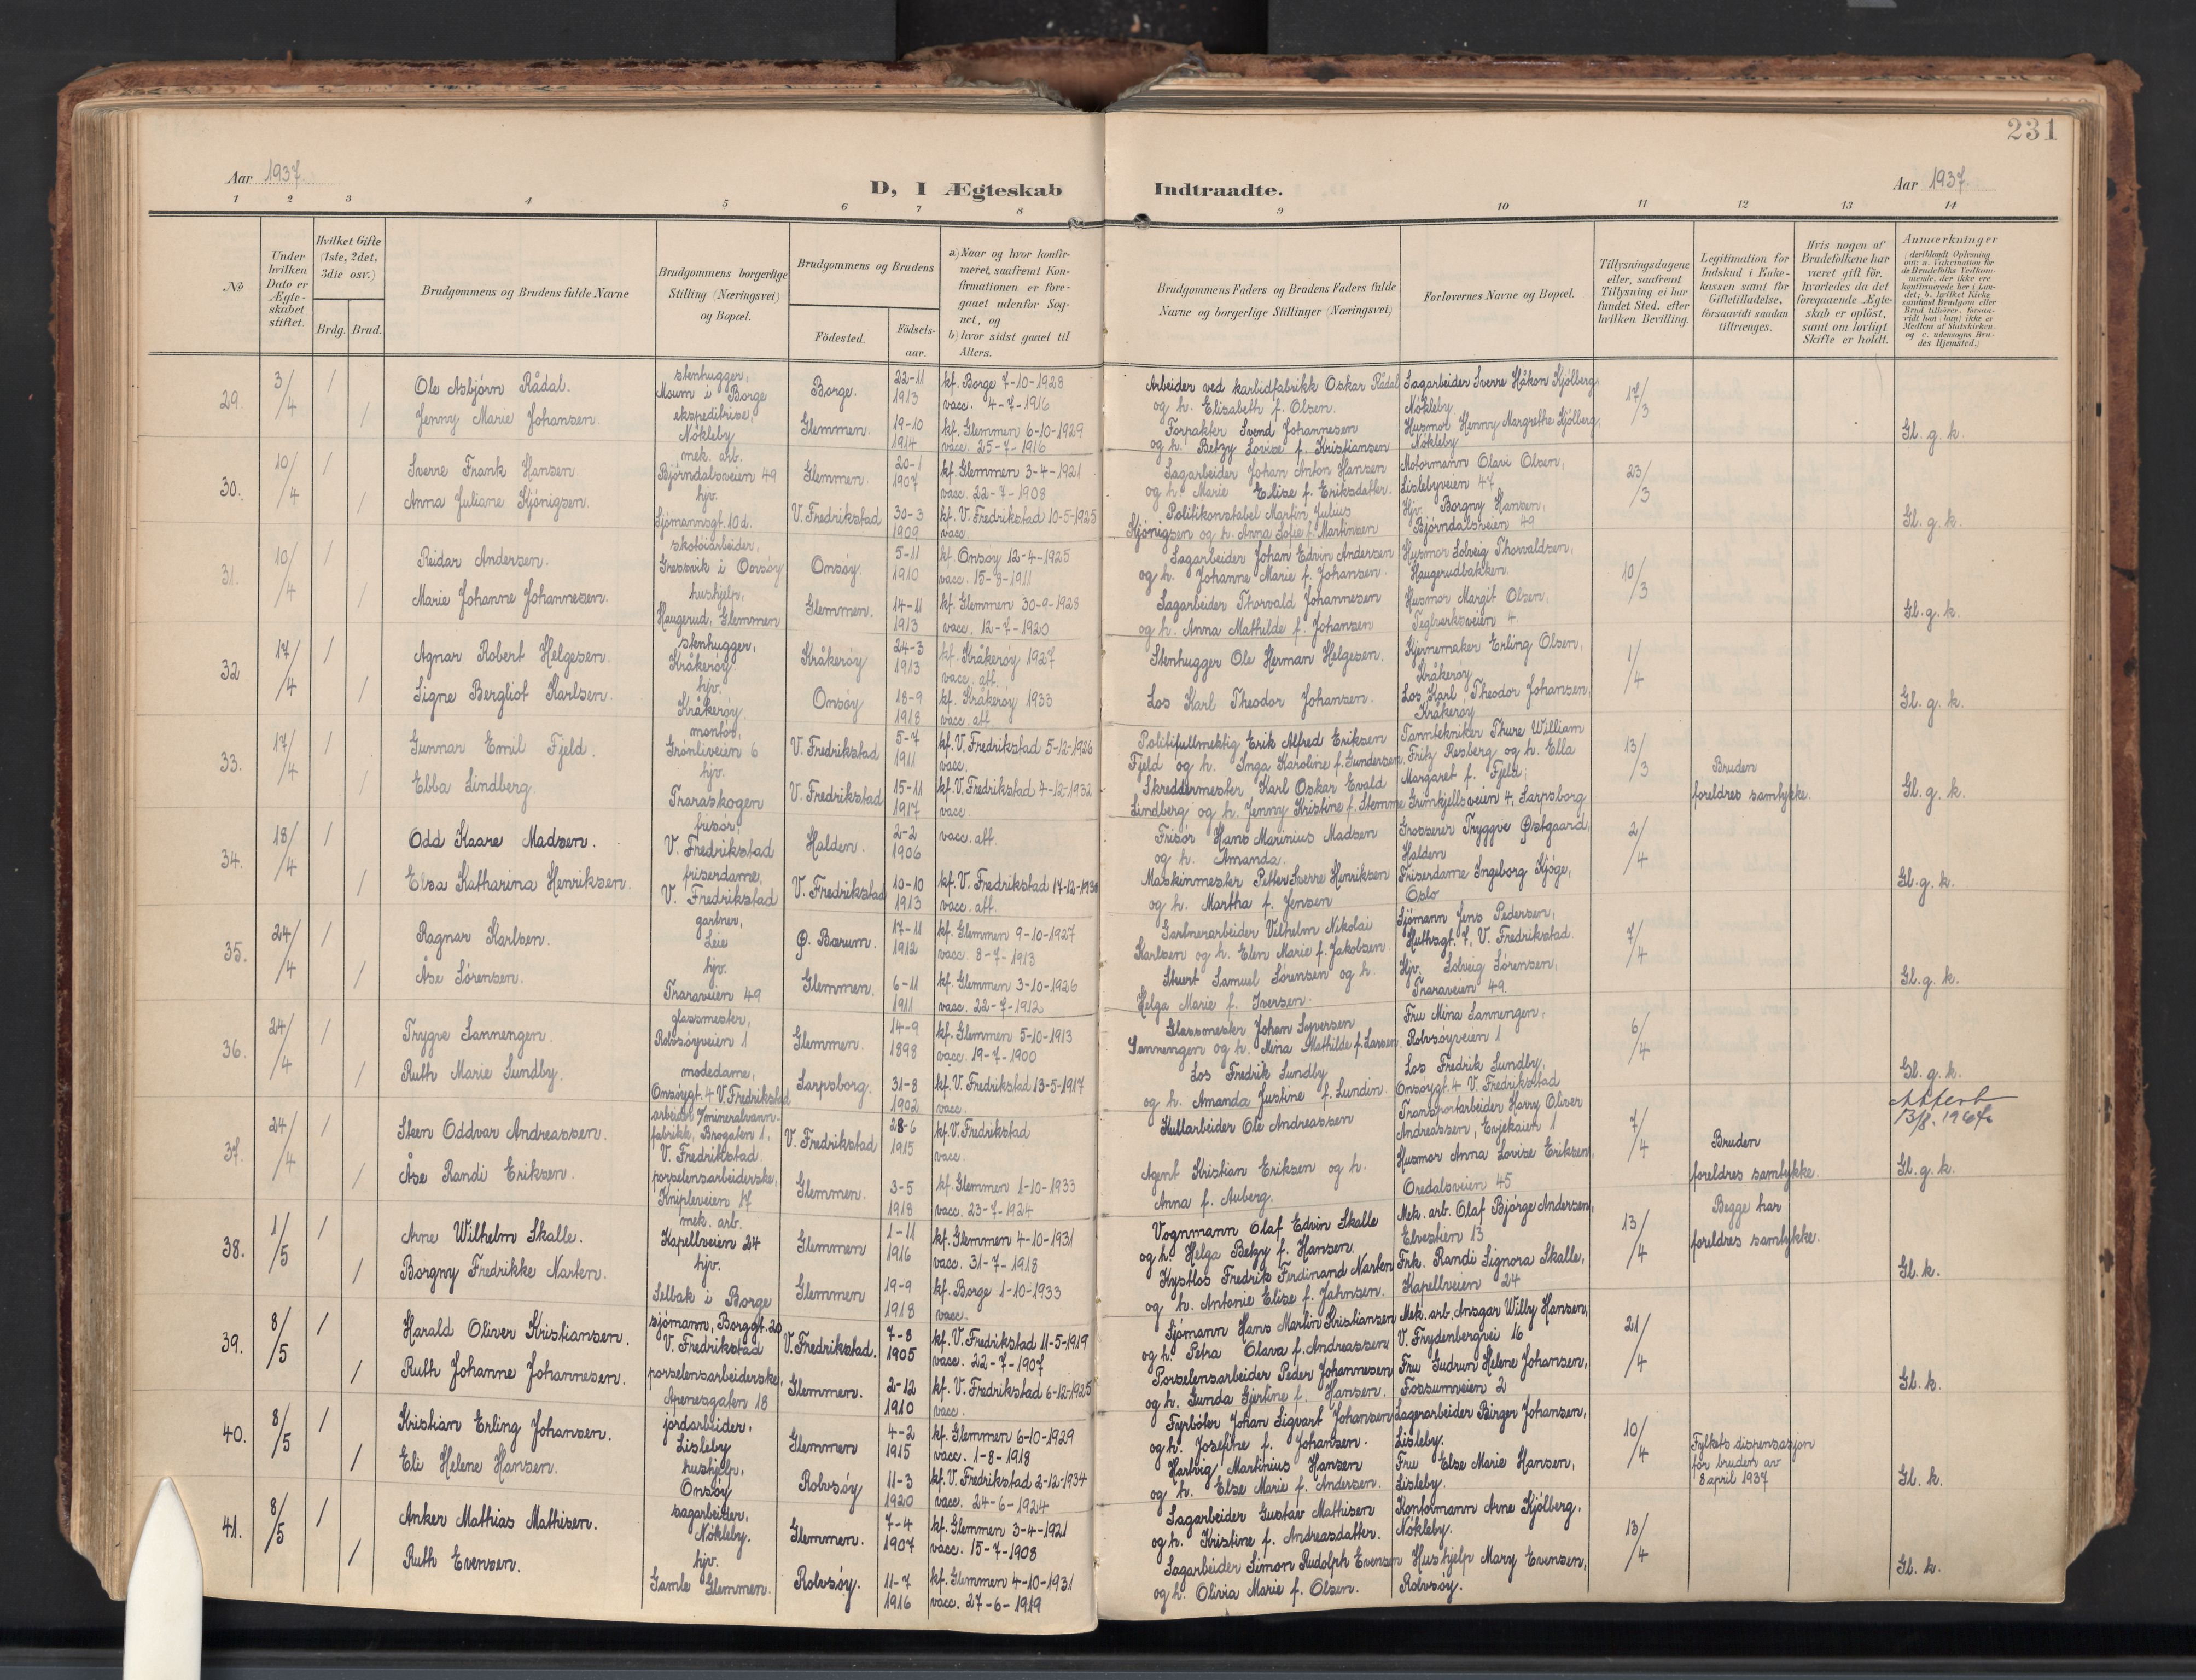 231
Aar 1937.
D, I Ægteskab Indtraadte.
Aar 1937.
1 2 3 4 5 6 7 8 9 10 11 12 13 14
No
Under hvilken Dato er Ægteskabet stiftet.
Hvilket Gifte (1ste, 2det, 3die osv.)
Brdg. Brud.
Brudgommens og Brudens fulde Navne
Brudgommens borgerlige Stilling (Næringsvei) og Bopæl.
Brudgommens og Brudens
Födested.
Födselsaar.
a) Naar og hvor konfirmeret, saafremt Konfirmationen er foregaaet udenfor Sognet, og
b) hvor sidst gaaet til Alters.
Brudgommens Faders og Brudens Faders fulde Navne og borgerlige Stillinger (Næringsvei)
Forlovernes Navne og Bopæl.
Tillysningsdagene eller, saafremt Tillysning ei har fundet Sted, efter hvilken Bevilling.
Legitimation for Indskud i Enkekassen samt for Giftetilladelse, forsaavidt saadan tiltrænges.
Hvis nogen af Brudefolkene har været gift før, hvorledes da det foregaaende Ægteskab er oplöst, samt om lovligt Skifte er holdt.
Anmærkninger (deriblandt Oplysning om: a. Vakcination for de Brudefolks Vedkommende, der ikke ere konfirmerede her i Landet; b. hvilket Kirkesamfund Brudgom eller Brud tilhører, forsaavidt han (hun) ikke er Medlem af Statskirken, og c. udensogns Brudes Hjemsted.)
29. 3/4 / Ole Asbjörn Rådal. stenhugger, Moum i Borge Borge. 22-11 1913 kf. Borge 7-10-1928 vacc. 4-7-1916 Arbeider ved karbidfabrikk Oskar Rådal og h. Elisabeth f. Olsen. Sagarbeider Sverre Håkon Kjölberg, Nökleby 17/3
/ Jenny Marie Johansen. ekspeditrise, Nökleby Glemmen. 19-10 1914 kf. Glemmen 6-10-1929 vacc. 25-7-1916 Forpakter Svend Johannesen og h. Betzy Lovise f. Kristiansen Husmor Henny Margrethe Kjölberg, Nökleby Gl. g. k.
30. 10/4 / Sverre Frank Hansen mek. arb. Björndalsveien 49 Glemmen. 20-1 1907 kf. Glemmen 3-4-1921 vacc. 22-7-1908 Sagarbeider Johan Anton Hansen og h. Marie Elise f. Eriksdatter. Motormann Olavi Olsen, Lislebyveien 47 23/3
/ Anna Juliane Kjönigsen. hjv. Sjömannsgt. 10 d. V. Fredrikstad 30-3 1909 kf. V. Fredrikstad 10-5-1925 vacc. Politikonstabel Martin Julius Kjönigsen og h. Anna Sofie f. Martinsen Hjv. Borgny Hansen, Björndalsveien 49 Gl. g. k.
31. 10/4 / Reidar Andersen. skotöiarbeider, Gressvik i Onsöy Onsöy. 5-11 1910 kf. Onsöy 12-4-1925 vacc. 15-8-1911 Sagarbeider Johan Edvin Andersen og h. Johanne Marie f. Johansen. Husmor Solveig Thorvaldsen, Haugerudbakken. 10/3
/ Marie Johanne Johannesen. hushjelp, Haugerud, Glemmen Glemmen. 14-11 1913 kf. Glemmen 30-9-1928 vacc. 12-7-1920 Sagarbeider Thorvald Johannesen og h. Anna Mathilde f. Johansen Husmor Margit Olsen, Teglverksveien 4. Gl. g. k.
32 17/4 / Agnar Robert Helgesen. stenhugger, Kråkeröy Kråkeröy 24-3 1913 kf. Kråkeröy 1927 vacc. att. Stenhugger Ole Herman Helgesen. Kjernemaker Erling Olsen, Kråkeröy 1/4
/ Signe Bergliot Karlsen. hjv. Kråkeröy Onsöy 18-9 1918 kf. Kråkeröy 1933 vacc. att. Los Karl Theodor Johansen. Los Karl Theodor Johansen, Kråkeröy Gl. g. k.
33. 17/4 / Gunnar Emil Fjeld. montör, Grönliveien 6 V. Fredrikstad 5-7 1911 kf. V. Fredrikstad 5-12-1926 vacc. Politifullmektig Erik Alfred Eriksen Fjeld og h. Inga Karoline f. Gundersen. Tanntekniker Thure William Fritz Resberg og h. Ella 13/3 Bruden
/ Ebba Lindberg. hjv. Traraskogen V. Fredrikstad 15-11 1917 kf. V. Fredrikstad 4-12-1932 vacc. Skreddermester Karl Oskar Evald Lindberg og h. Jenny Kristine f. Stemme Margaret f. Fjeld, Grimkjellsveien 4, Sarpsborg foreldres samtykke. Gl. g. k.
34. 18/4 / Odd Kaare Madsen. frisör, V. Fredrikstad Halden. 2-2 1906 vacc. att. Frisör Hans Marinius Madsen og h. Amanda. Grosserer Tryggve Østgaard, Halden 2/4
/ Elsa Katharina Henriksen. friserdame, V. Fredrikstad V. Fredrikstad 10-10 1913 kf. V. Fredrikstad 17-12-1930 vacc. att. Maskinmester Petter Sverre Henriksen og h. Martha f. Jensen Friserdame Ingeborg Kjöge, Oslo Gl. g. k.
35. 24/4 / Ragnar Karlsen. gartner, Leie Ø. Bærum. 17-11 1912 kf. Glemmen 9-10-1927 vacc. 8-7-1913 Gartnerarbeider Vilhelm Nikolai Karlsen og h. Elen Marie f. Jakobsen. Sjömann Jens Pedersen, Huthsgt. 7, V. Fredrikstad. 7/4
/ Åse Sörensen. hjv. Traraveien 49 Glemmen. 6-11 1911 kf. Glemmen 3-10-1926 vacc. 22-7-1912 Stuert Samuel Sörensen og h. Helga Marie f. Iversen. Hjv. Solveig Sörensen, Traraveien 49. Gl. g. k.
36. 24/4 / Trygve Sannengen. glassmester, Rolvsöyveien 1 Glemmen. 14-9 1898 kf. Glemmen 5-10-1913 vacc. 19-7-1900 Glassmester Johan Syversen Sannengen og h. Mina Mathilde f. Larsen. Fru Mina Sannengen, Rolvsöyveien 1 6/4
/ Ruth Marie Lundby. modedame, Onsöygt. 4 V. Fredrikstad Sarpsborg. 31-8 1902 kf. V. Fredrikstad 13-5-1917 vacc. Los Fredrik Lundby og h. Amanda Justine f. Lundin. Los Fredrik Lundby, Onsöygt. 4 V. Fredrikstad Gl. g. k.
37. 24/4 / Steen Oddvar Andreassen. arbeider v/mineralvannfabrikk, Brogaten 1, V. Fredrikstad. V. Fredrikstad 28-6 1915 kf. V. Fredrikstad vacc. Kullarbeider Ole Andreassen Transportarbeider Harry Oliver Andreassen, Evjekaien 1 7/4 Bruden 13/8. 1964
/ Åse Randi Eriksen. porselensarbeiderske, Knipleveien 17 Glemmen. 3-5 1918 kf. Glemmen 1-10-1933 vacc. 23-7-1924 Agent Kristian Eriksen og h. Anna f. Auberg. Husmor Anna Lovise Eriksen, Oredalsveien 45 foreldres samtykke. Gl. g. k.
38. 1/5 / Arne Wilhelm Skalle. mek. arb. Kapellveien 24 Glemmen 1-11 1916 kf. Glemmen 4-10-1931 vacc. 31-7-1918 Vognmann Olaf Edvin Skalle og h. Helga Betzy f. Hansen. Mek. arb. Olaf Bjórge Andersen, Elvestien 13 13/4 Begge har foreldres samtykke.
/ Borgny Fredrikke Narten. hjv. Selbak i Borge Glemmen 19-9 1918 kf. Borge 1-10-1933 vacc. Kystlos Fredrik Ferdinand Narten og h. Antonie Elise f. Jahnsen. Frk. Randi Signora Skalle, Kapellveien 24 Gl. k.
39. 8/5 / Harald Oliver Kristiansen. sjömann, Borggt. 20 V. Fredrikstad V. Fredrikstad. 7-8 1905 kf. V. Fredrikstad 11-5-1919 vacc. 22-7-1907 Sjömann Hans Martin Kristiansen og h. Petra Olava f. Andreassen Mek. arb. Ansgar Wilby Hansen, V. Frydenbergvei 16 21/4
/ Ruth Johanne Johannesen. porselensarbeiderske, Apenesgaten 18 Glemmen. 2-12 1910 kf. V. Fredrikstad 6-12-1925 vacc. Porselensarbeider Peder Johannesen og h. Gunda Gjertine f. Hansen. Fru Gudrun Helene Johansen, Fossumveien 2 Gl. k.
40. 8/5 / Kristian Erling Johansen. jordarbeider, Lisleby Glemmen 4-2 1915 kf. Glemmen 6-10-1929 vacc. 1-8-1918 Fyrböter Johan Sigvart Johansen og h. Josefine f. Johansen. Lagerarbeider Birger Johansen, Lisleby. 10/4 Fylkets dispensasjon for bruden av 8 april 1937
/ Eli Helene Hansen. hushjelp, Onsöy Rolvsöy 11-3 1920 kf. V. Fredrikstad 2-12-1934 vacc. 24-6-1924 Hartvig Martinius Hansen og h. Else Marie f. Andersen. Fru Else Marie Hansen, Lisleby. Gl. k.
41. 8/5 / Anker Mathias Mathisen. sagarbeider, Nökleby. Glemmen. 7-4 1907 kf. Glemmen 3-4-1921 vacc. 15-7-1908 Sagarbeider Gustav Mathisen og h. Kristine f. Andreasdatter. Kontormann Arne Kjölberg, Nökleby. 13/4
/ Ruth Evensen. hjv. Gamle Glemmen. Rolvsöy. 11-7 1916 kf. Glemmen 4-10-1931 vacc. 27-6-1919 Sagarbeider Simon Rudolph Evensen og h. Olivia Marie f. Olsen. Hushjelp Mary Evensen, Rolvsöy. Gl. k.